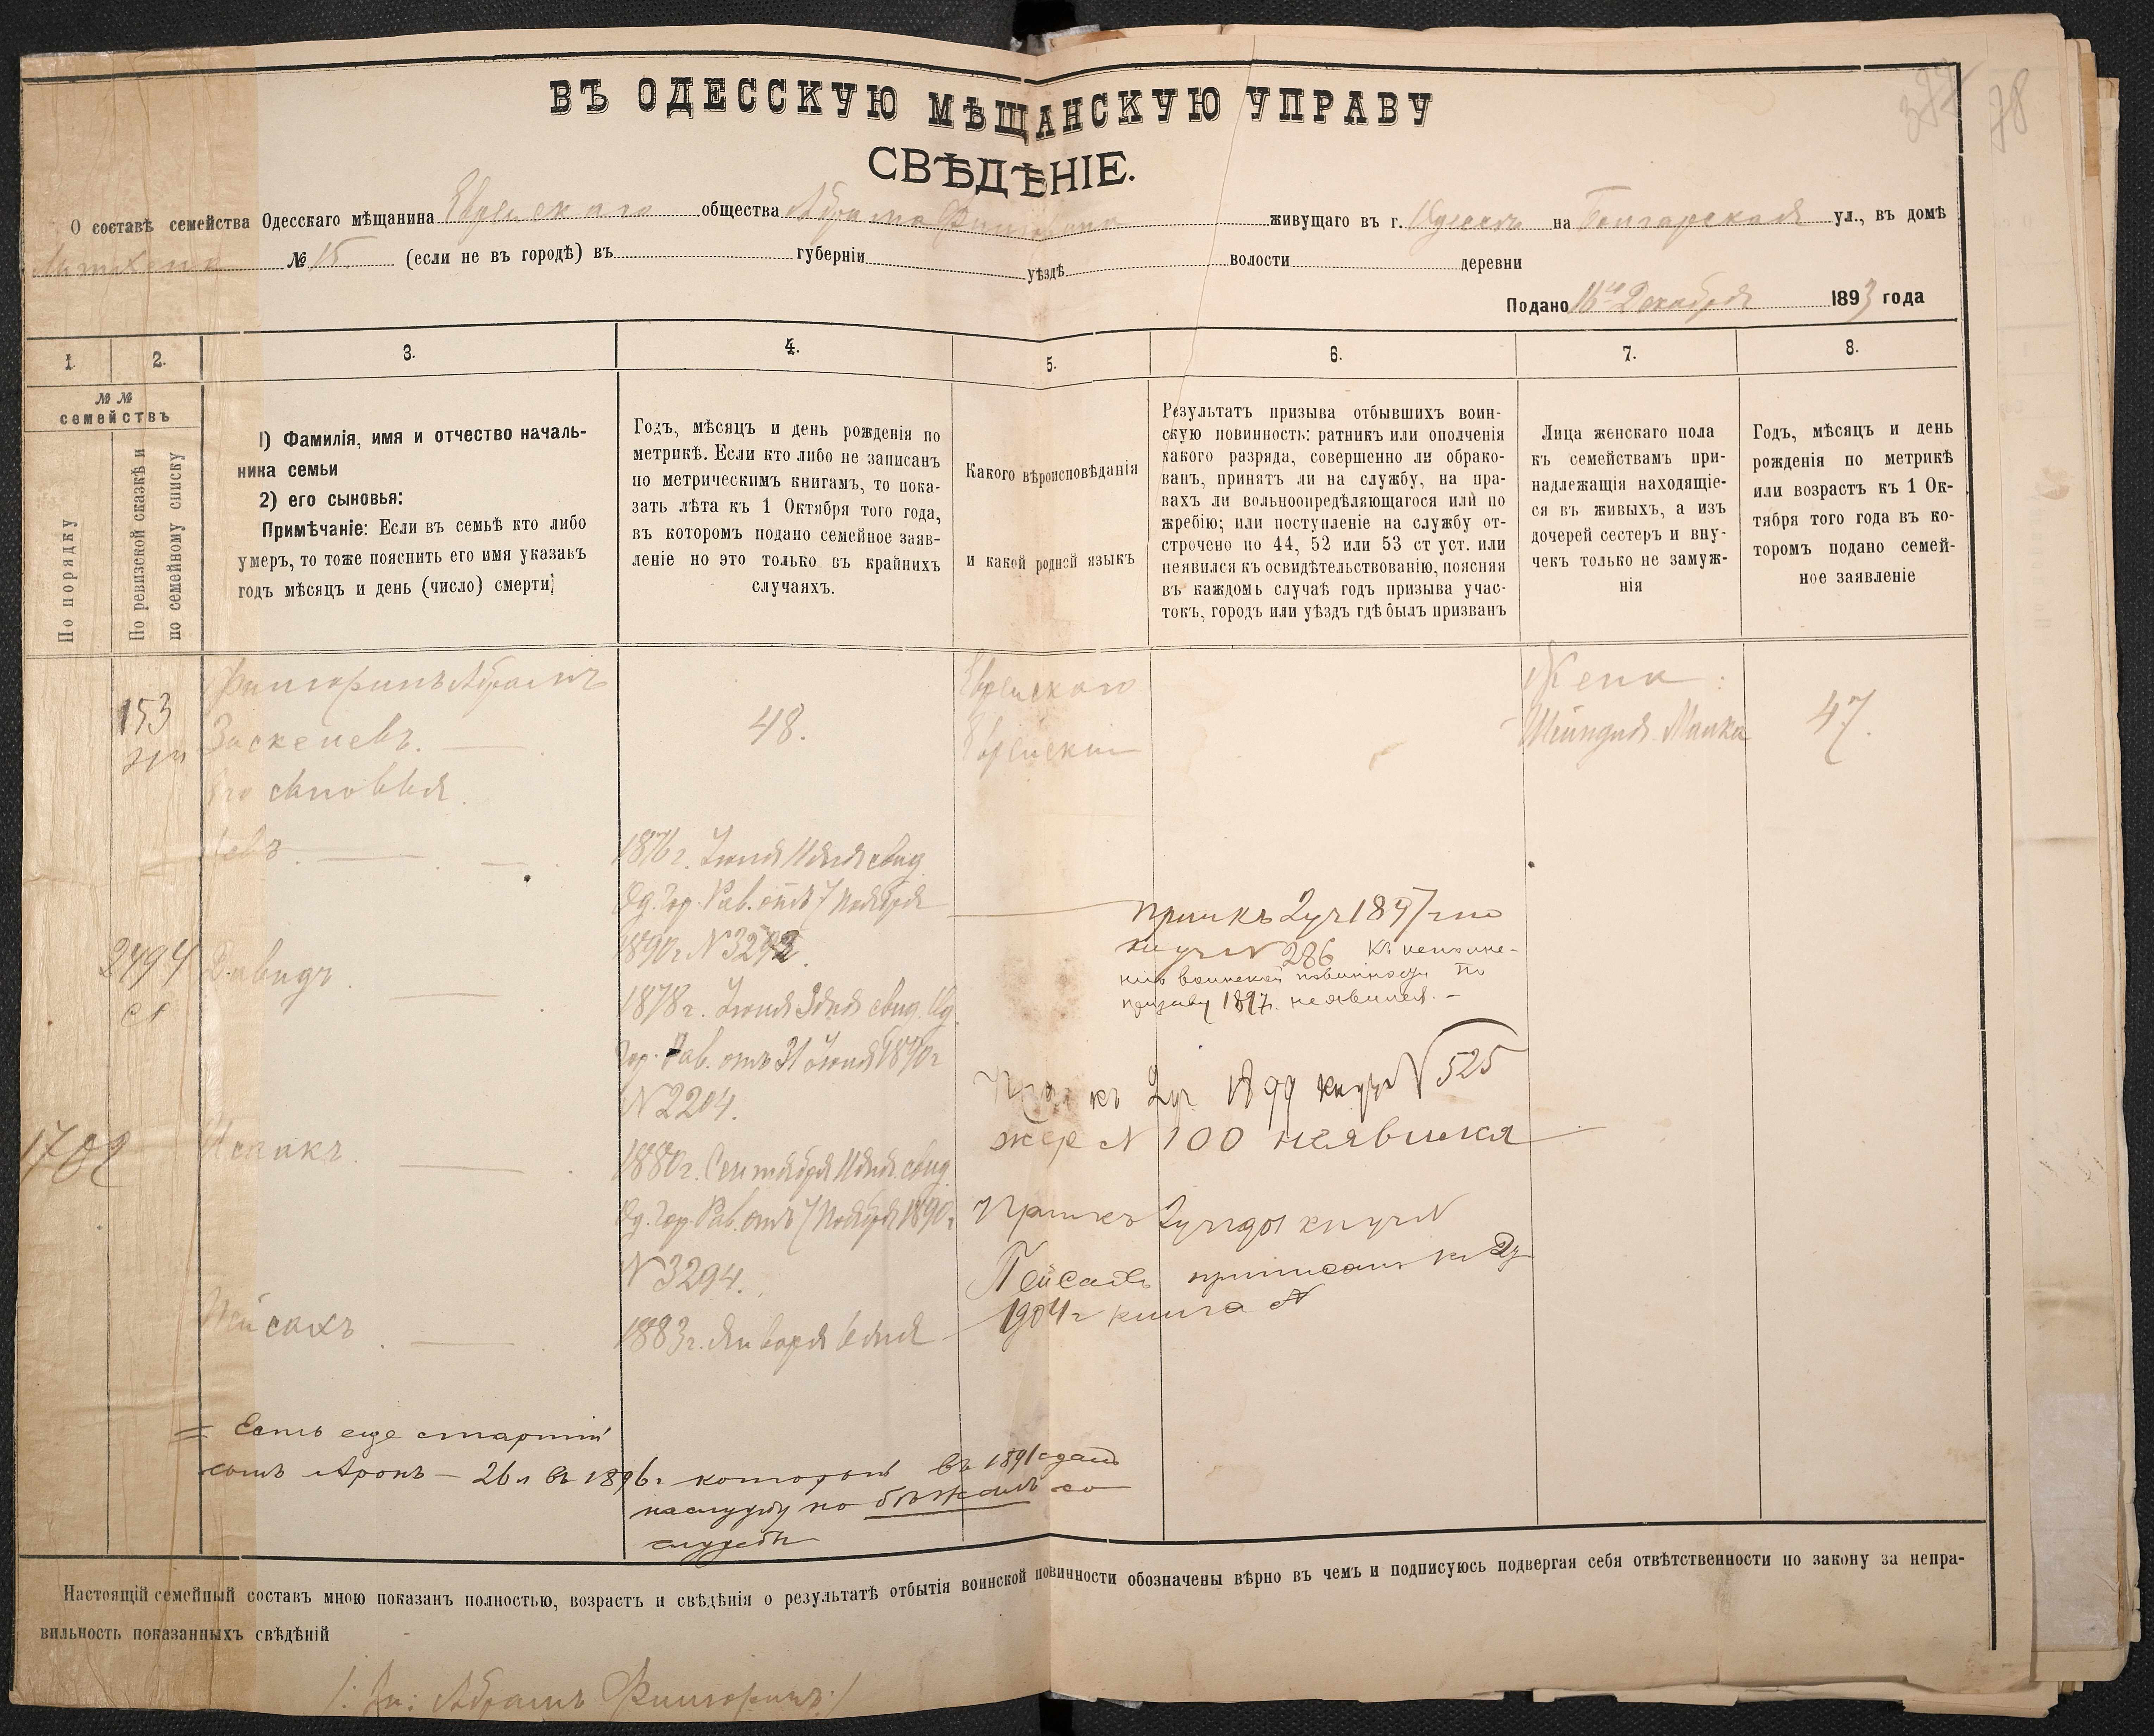 392
78
ВЪ ОДЕССКУЮ МѢЩАНСКУЮ УПРАВУ
СВѢДѢНІЕ.
О составѣ семейства Одесскаго мѣщанина Еврейскаго общества Абрама живущаго въ г. Одессѣ на Болгарской ул., въ домѣ
№ 15 (если не въ городѣ) въ губерніи уѣздѣ волости деревни
Подано 16го Декабря 1893 года
1. 2. 3. 4. 5. 6. 7. 8.
№№ семействъ
По порядку
По ревизской сказкѣ и
по семейному списку
1) Фамилія, имя и отчество началь-
ника семьи
2) его сыновья:
Примѣчаніе: Если въ семьѣ кто либо
умеръ, то тоже пояснить его имя указавъ
годъ мѣсяцъ и день (число) смерти;
Годъ, мѣсяцъ и день рожденія по
метрикѣ. Если кто либо не записанъ
по метрическимъ книгамъ, то пока-
зать лѣта къ 1 Октября того года,
въ которомъ подано семейное заяв-
леніе но это только въ крайнихъ
случаяхъ.
Какого вѣроисповѣданія
и какой родной языкъ
Результатъ призыва отбывшихъ воин-
скую повинность: ратникъ или ополченія
какого разряда, совершенно ли обрако-
ванъ, принятъ ли на службу, на пра-
вахъ ли вольноопредѣляющагося или по
жребію; или поступленіе на службу от-
строчено по 44, 52 или 53 ст уст. или
неявился къ освидѣтельствованію, поясняя
въ каждомъ случаѣ годъ призыва учас-
токъ, городъ или уѣздъ гдѣ былъ призванъ
Лица женскаго пола
къ семействамъ при-
надлежащія находящіе-
ся въ живыхъ, а изъ
дочерей сестеръ и вну-
чекъ только не замуж-
нія
Годъ, мѣсяцъ и день
рожденія по метрикѣ
или возрастъ къ 1 Ок-
тября того года въ ко-
торомъ подано семей-
ное заявленіе
153
Абрамъ
48.
Еврейскаго
Еврейскій
Жена:
Шейндля Малка
47.
Его сыновья
1876 г. Іюля 11 дня свид.
Од. Гор. Рав. отъ 7 Ноября
1890 г. N 3292.
прип къ 2 уч 1897 г по
кн уч N 286 къ исполне-
нію воинской повинности по
призыву 1897 г. не явился. -
2494
Давидъ.
1878 г. Іюля 3 дня свид. Од.
Гор. Рав. отъ 31 Іюля 1890 г
N 2204.
Прип къ 2 уч 1899 кн уч N 525
жер N 100 неявился
1702
Исаакъ.
1880 г. Сентября 11 дня свид.
Од. Гор. Рав. отъ 7 Ноября 1890 г.
N 3294.
Прип къ 2 уч 1901 кн уч N
Пейсахъ.
1883 г. Января 6 дня
Пейсахъ приписанъ къ 2 у
1904 г книга N
= Есть еще старшій
сынъ Аронъ - 26 л въ 1896 г который въ 1891 сданъ
на службу но бѣжалъ со
службы
Настоящій семейный составъ мною показанъ полностью, возрастъ и свѣдѣнія о результатѣ отбытія воинской повинности обозначены вѣрно въ чемъ и подписуюсь подвергая себя отвѣтственности по закону за непра-
вильность показанныхъ свѣдѣній
Абрамъ